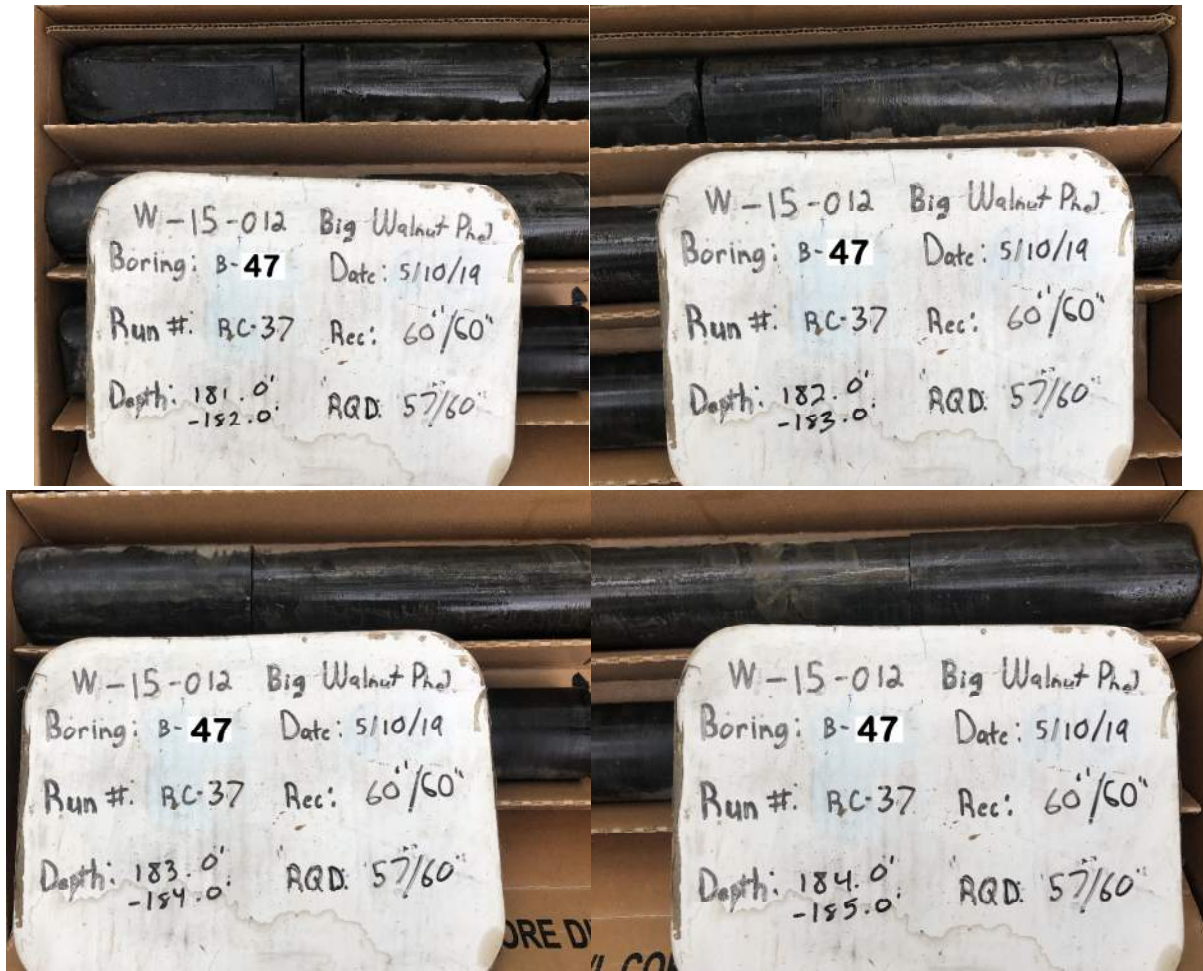 W-15-012 Big Walnut Ph2
Boring: B-47 Date: 5/10/19
Run #: RC-37 Rec: 60"/60"
Depth: 181.0' RQD: 57"/60"
-182.0'
W-15-012 Big Walnut Ph2
Boring: B-47 Date: 5/10/19
Run #: RC-37 Rec: 60"/60"
Depth: 182.0' RQD: 57"/60"
-183.0'
W-15-012 Big Walnut Ph2
Boring: B-47 Date: 5/10/19
Run #: RC-37 Rec: 60"/60"
Depth: 183.0' RQD: 57"/60"
-184.0'
ORE D
W-15-012 Big Walnut Ph2
Boring: B-47 Date: 5/10/19
Run #: RC-37 Rec: 60"/60"
Depth: 184.0' RQD: 57"/60"
-185.0'